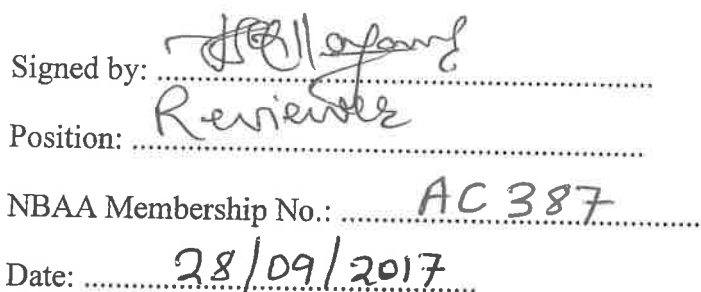 Signed by:
Position: Reviewer
NBAA Membership No.: AC 387
Date: 28/09/2017